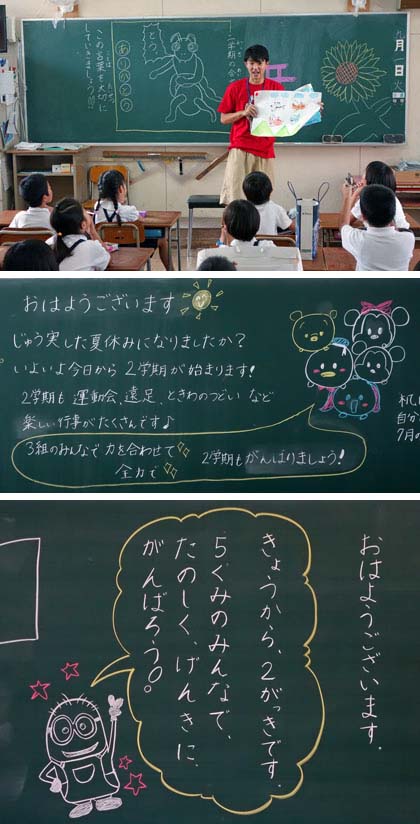 九月一日
火
二学期の会
とう。
ありがとう
この言葉を大切に
していきましょう。
おはようございます
じゅう実した夏休みになりましたか?
いよいよ今日から 2学期が始まります!
2学期も 運動会、遠足、ときわのつどい など
楽しい行事がたくさんです♪
3組のみんなで 力を合わせて
全力で
2学期も がんばりましょう!
机
自分
7月の
おはようございます。
きょうから、2がっきです。
5くみのみんなで、
たのしく、げんきに
がんばろう。